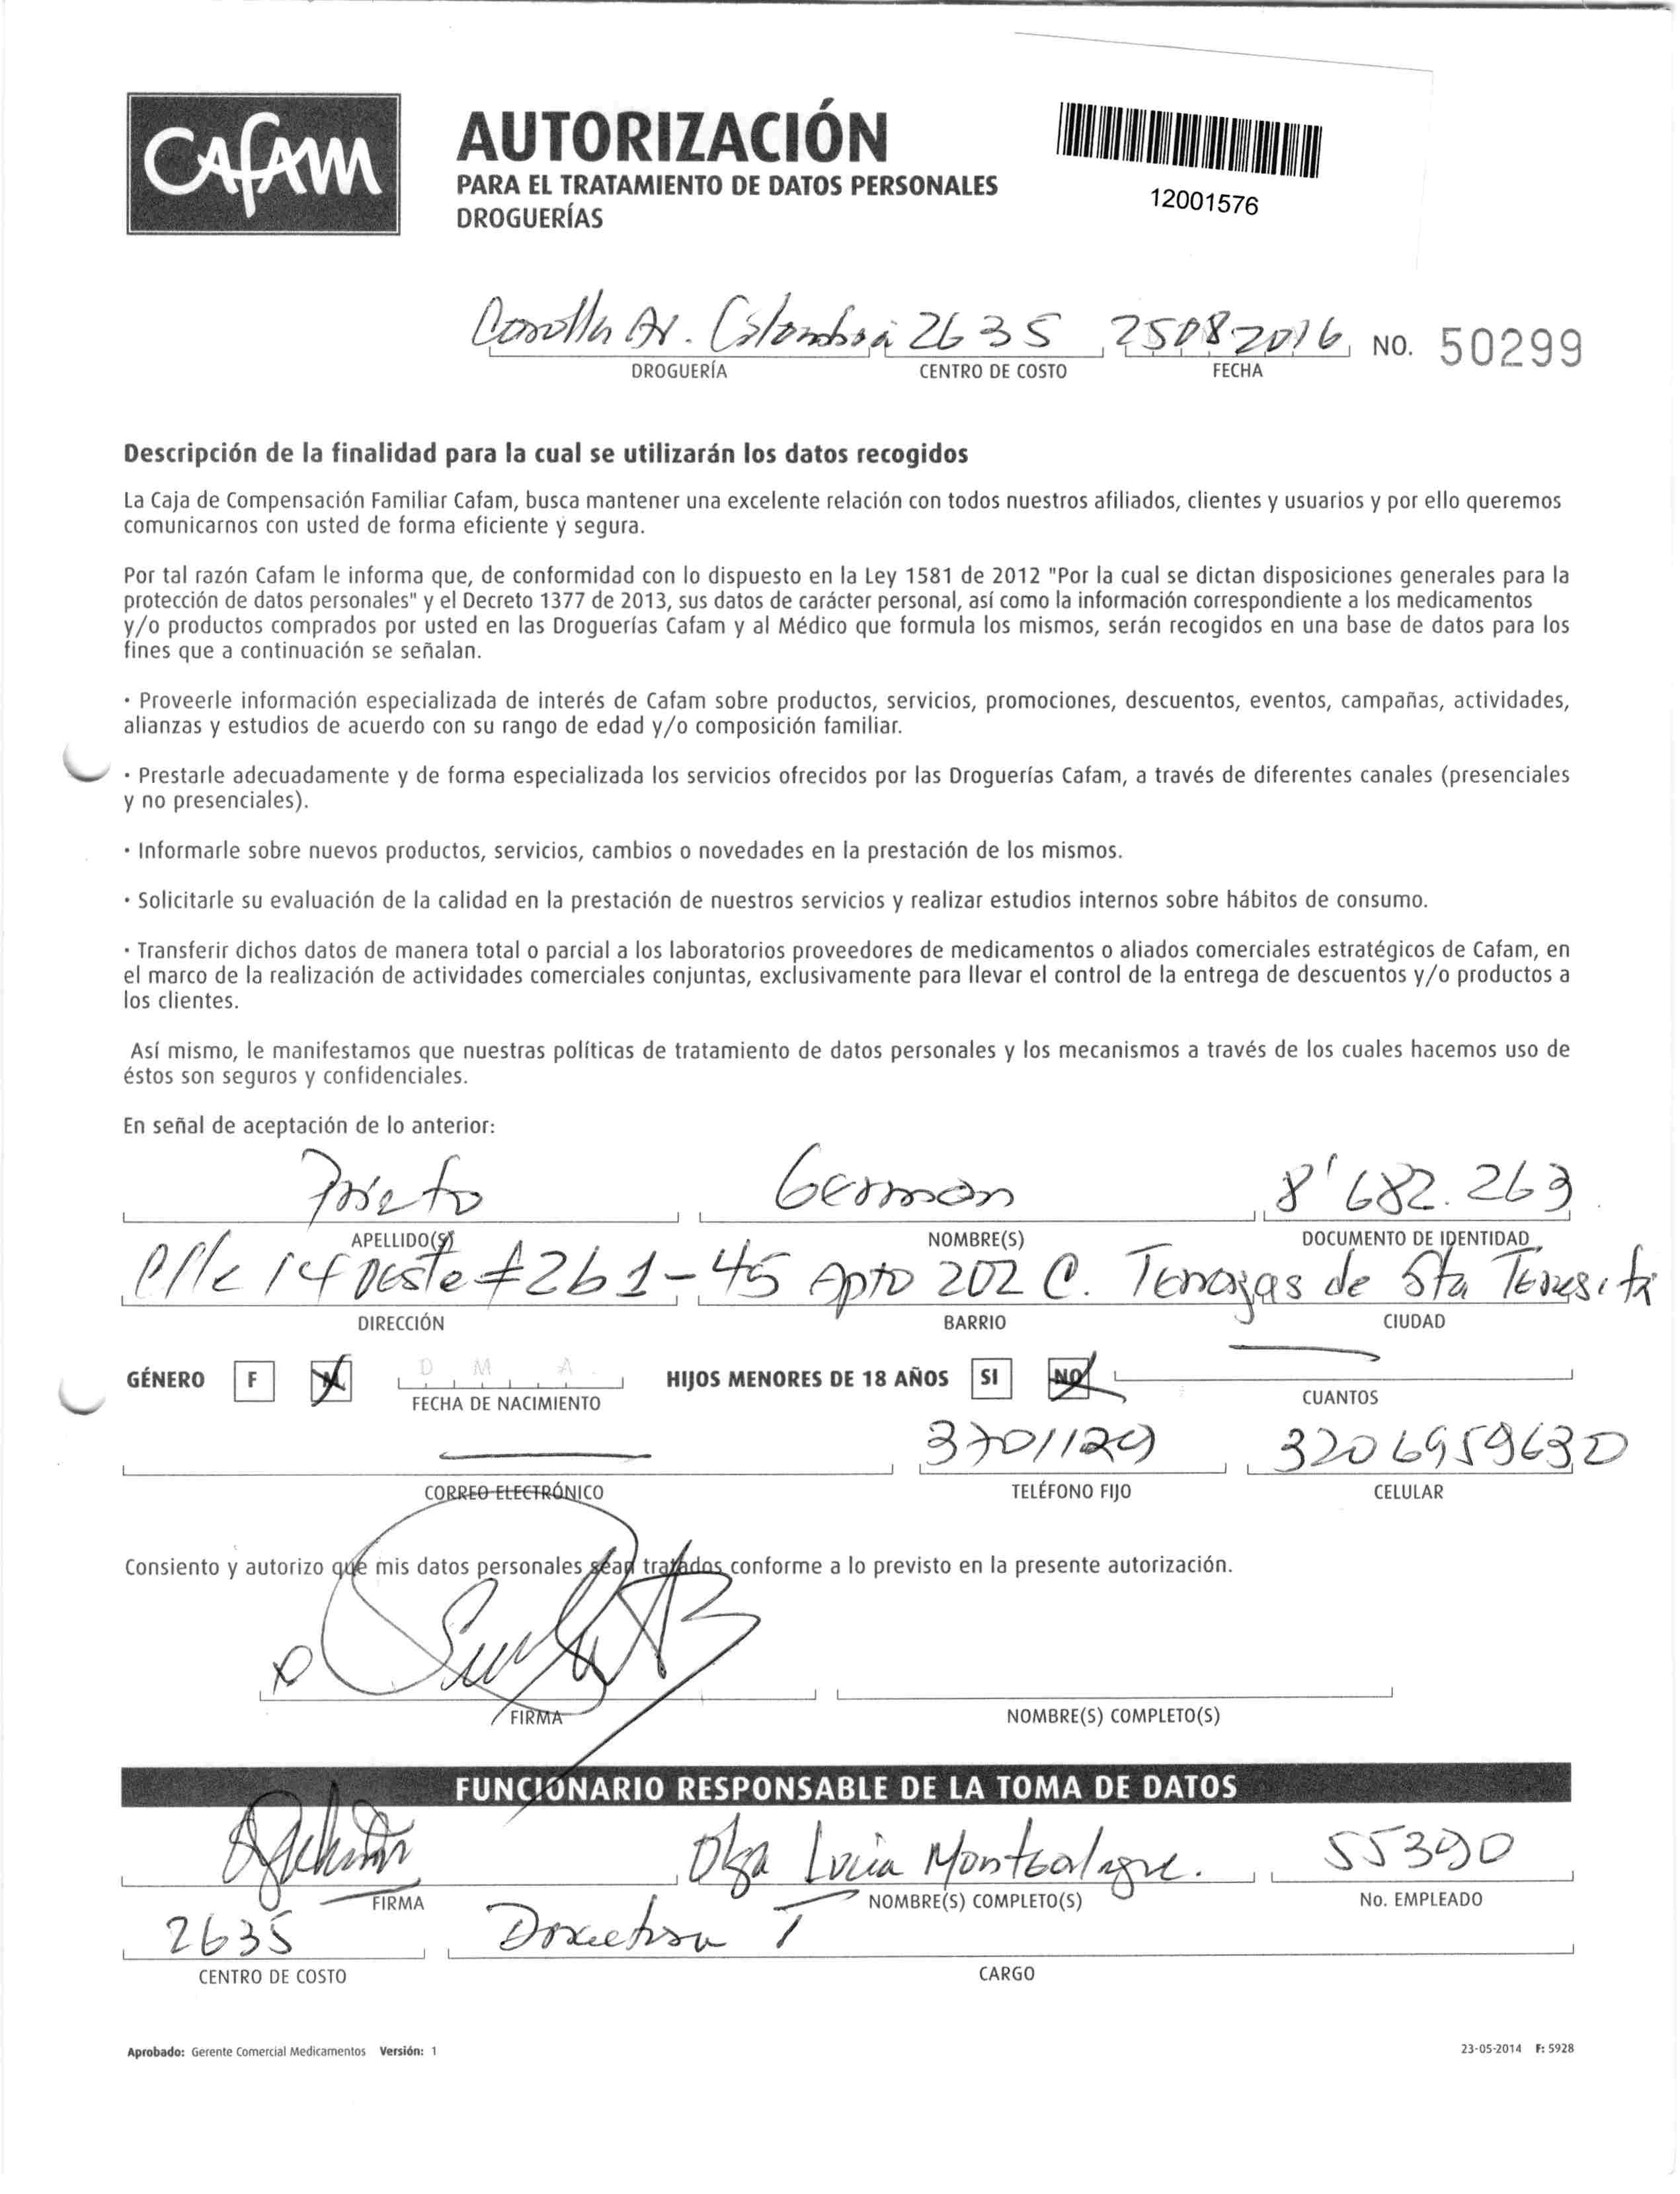 CAFAM
AUTORIZACIÓN
PARA EL TRATAMIENTO DE DATOS PERSONALES
DROGUERÍAS
12001576
Av. Colombia 2635 25082016 NO. 50299
DROGUERÍA CENTRO DE COSTO FECHA
Descripción de la finalidad para la cual se utilizarán los datos recogidos
La Caja de Compensación Familiar Cafam, busca mantener una excelente relación con todos nuestros afiliados, clientes y usuarios y por ello queremos
comunicarnos con usted de forma eficiente y segura.
Por tal razón Cafam le informa que, de conformidad con lo dispuesto en la Ley 1581 de 2012 "Por la cual se dictan disposiciones generales para la
protección de datos personales" y el Decreto 1377 de 2013, sus datos de carácter personal, así como la información correspondiente a los medicamentos
y/o productos comprados por usted en las Droguerías Cafam y al Médico que formula los mismos, serán recogidos en una base de datos para los
fines que a continuación se señalan.
· Proveerle información especializada de interés de Cafam sobre productos, servicios, promociones, descuentos, eventos, campañas, actividades,
alianzas y estudios de acuerdo con su rango de edad y/o composición familiar.
· Prestarle adecuadamente y de forma especializada los servicios ofrecidos por las Droguerías Cafam, a través de diferentes canales (presenciales
y no presenciales).
· Informarle sobre nuevos productos, servicios, cambios o novedades en la prestación de los mismos.
· Solicitarle su evaluación de la calidad en la prestación de nuestros servicios y realizar estudios internos sobre hábitos de consumo.
· Transferir dichos datos de manera total o parcial a los laboratorios proveedores de medicamentos o aliados comerciales estratégicos de Cafam, en
el marco de la realización de actividades comerciales conjuntas, exclusivamente para llevar el control de la entrega de descuentos y/o productos a
los clientes.
Así mismo, le manifestamos que nuestras políticas de tratamiento de datos personales y los mecanismos a través de los cuales hacemos uso de
éstos son seguros y confidenciales.
En señal de aceptación de lo anterior:
Prieto German 8'682.263
APELLIDO(S) NOMBRE(S) DOCUMENTO DE IDENTIDAD
Clle 14 Oeste # 2b1-45 Apto 202 C. Terrazas de Sta Teresita
DIRECCIÓN BARRIO CIUDAD
GÉNERO F M D M A HIJOS MENORES DE 18 AÑOS SI NO
FECHA DE NACIMIENTO CUANTOS
3701129 3206959630
CORREO ELECTRÓNICO TELÉFONO FIJO CELULAR
Consiento y autorizo que mis datos personales sean tratados conforme a lo previsto en la presente autorización.
FIRMA NOMBRE(S) COMPLETO(S)
FUNCIONARIO RESPONSABLE DE LA TOMA DE DATOS
Olga Lucia Montealegre. 55390
FIRMA NOMBRE(S) COMPLETO(S) No. EMPLEADO
2635 Directora I
CENTRO DE COSTO CARGO
Aprobado: Gerente Comercial Medicamentos Versión: 1 23-05-2014 F: 5928